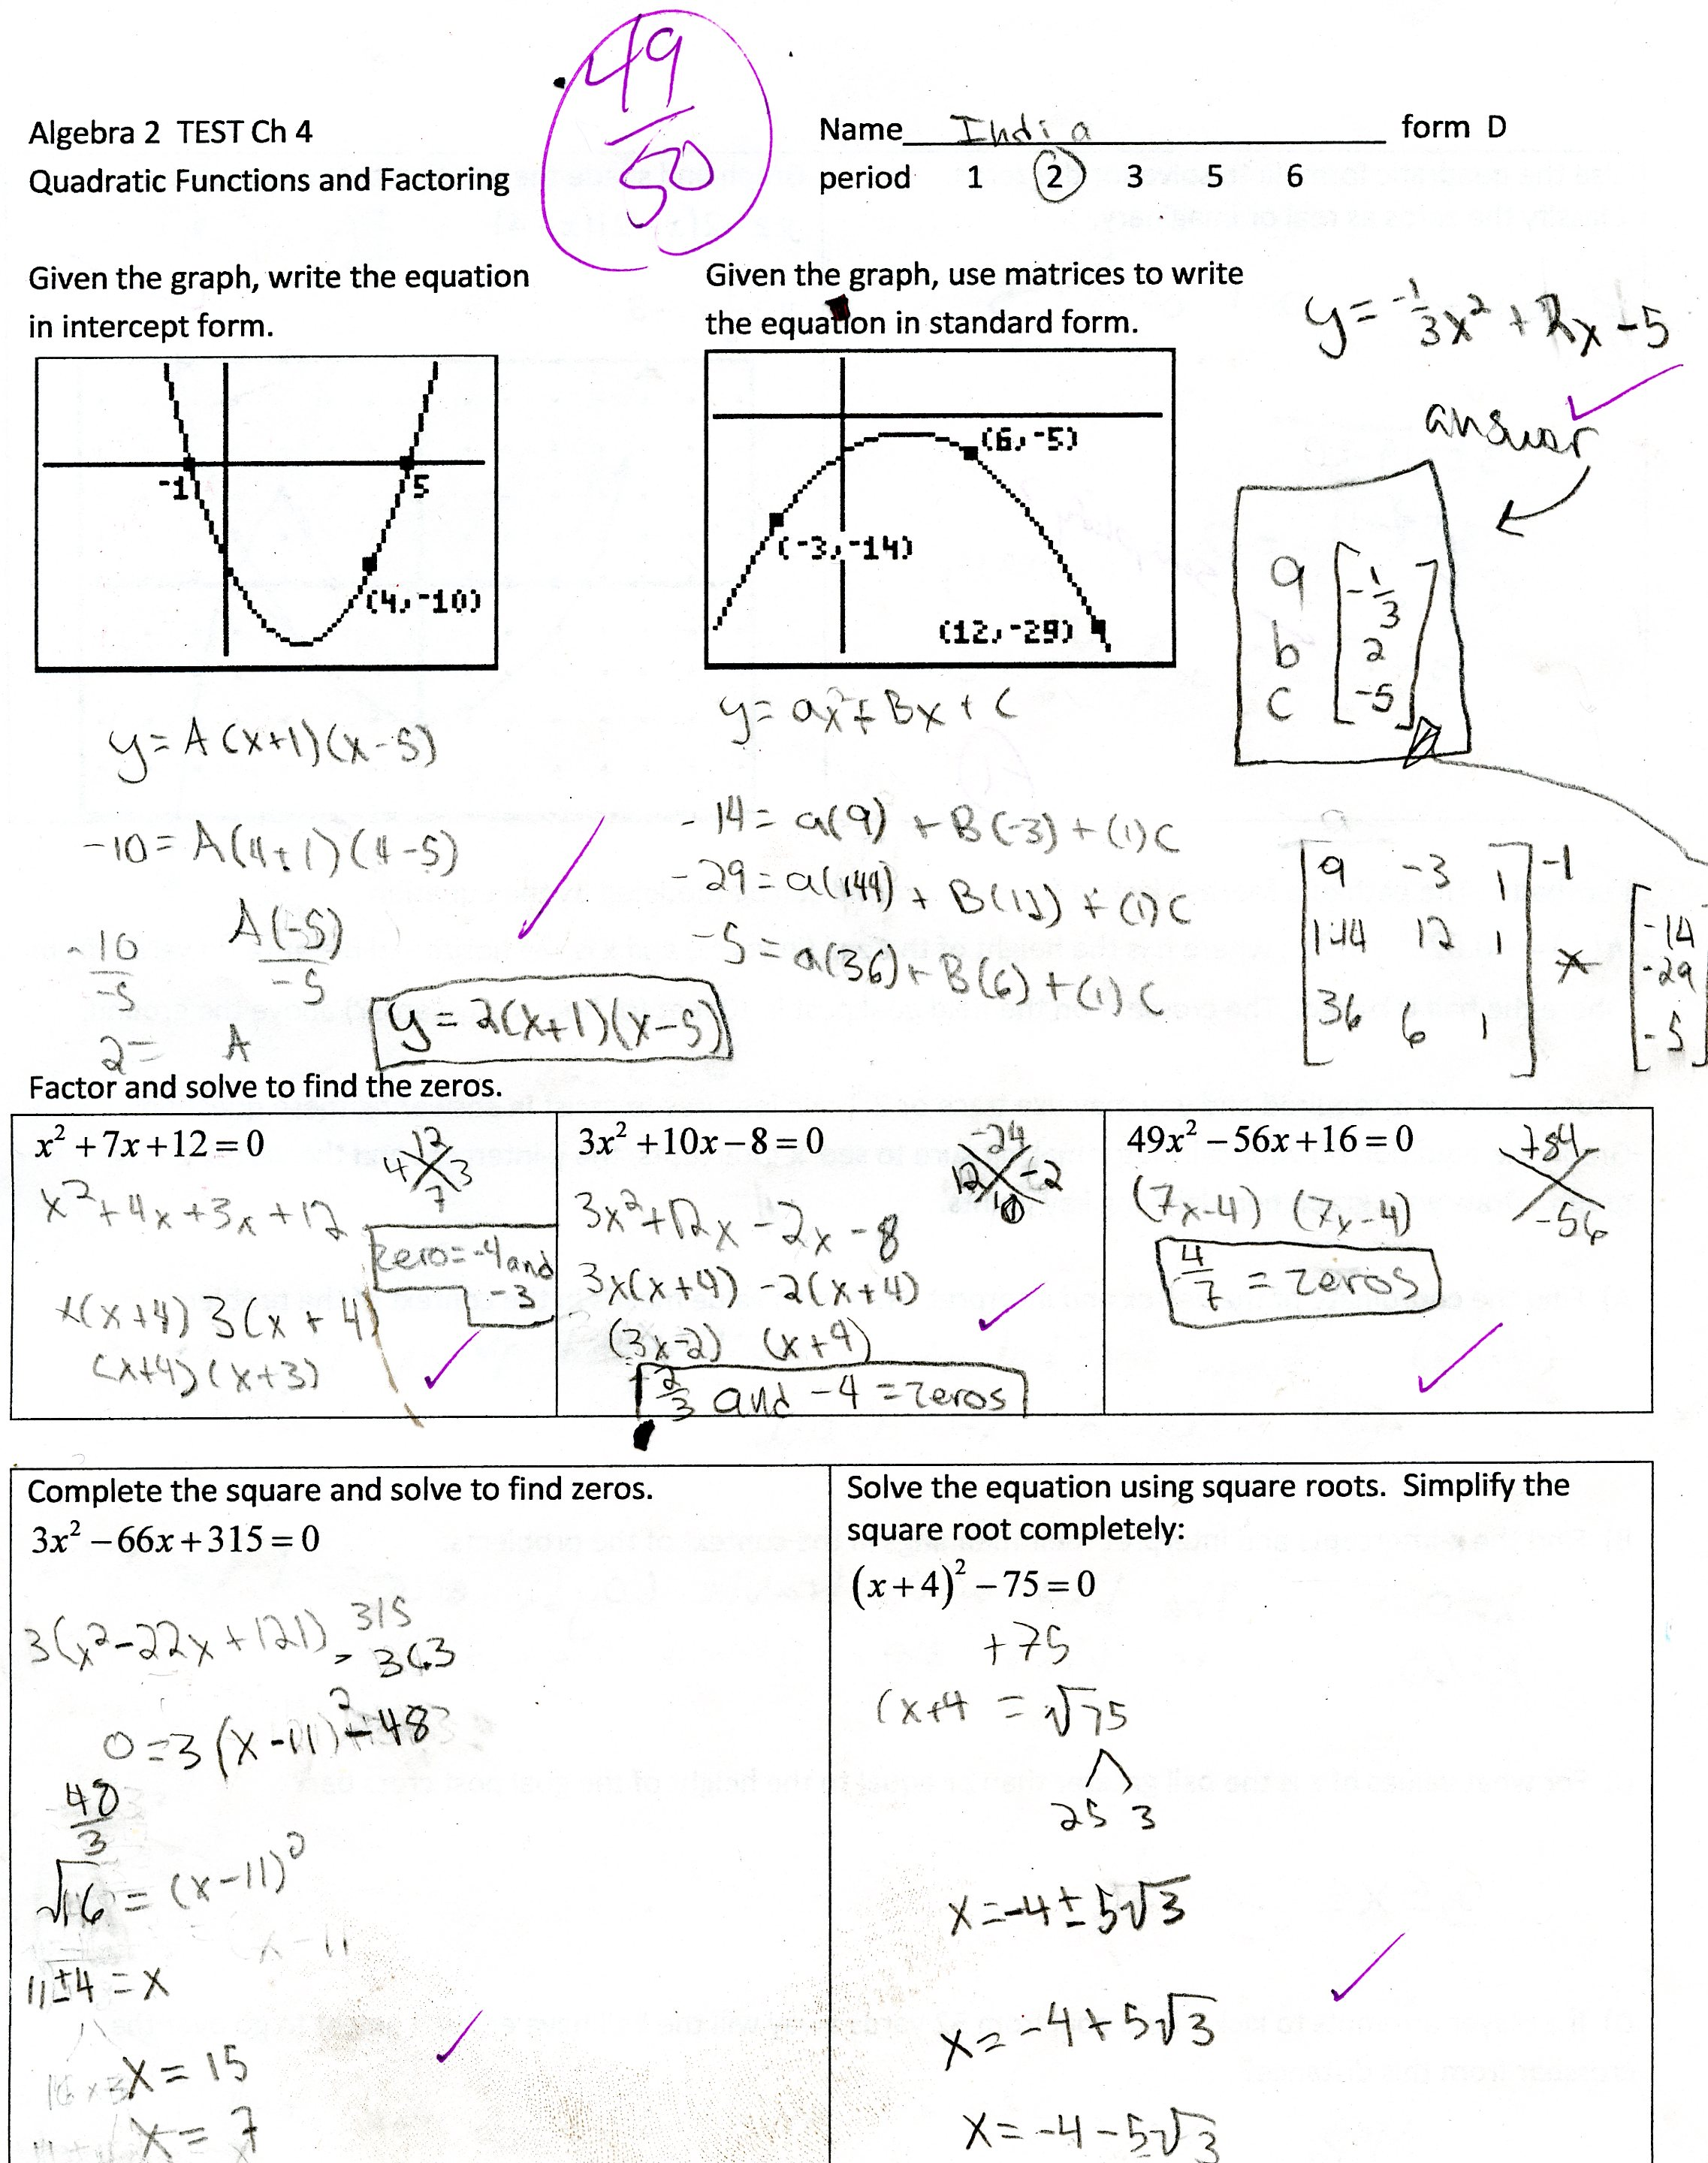 49
50
Algebra 2 TEST Ch 4
Quadratic Functions and Factoring
Name India form D
period 1 2 3 5 6
Given the graph, write the equation
in intercept form.
-1
5
(4,-10)
y = A(x+1)(x-5)
-10 = A(4+1)(4-5)
-10 A(-5)
-5 -5
2 = A
y = 2(x+1)(x-5)
Given the graph, use matrices to write
the equation in standard form.
(6,-5)
(-3,-14)
(12,-29)
y = -1/3x² + 2x - 5
answer
a [-1/3]
b [2]
c [-5]
y = ax² + Bx + C
-14 = a(9) + B(-3) + (1)C
-29 = a(144) + B(12) + (1)C
-5 = a(36) + B(6) + (1)C
[9 -3 1]-1 [-14]
[144 12 1] * [-29]
[36 6 1] [-5]
Factor and solve to find the zeros.
x² + 7x + 12 = 0
12
4 3
7
x² + 4x + 3x + 12
zero = -4 and
-3
x(x+4) 3(x+4)
(x+4)(x+3)
3x² + 10x - 8 = 0
-24
12 -2
10
3x² + 12x - 2x - 8
3x(x+4) -2(x+4)
(3x-2) (x+4)
2/3 and -4 = zeros
49x² - 56x + 16 = 0
784
-56
(7x-4) (7x-4)
4/7 = zeros
Complete the square and solve to find zeros.
3x² - 66x + 315 = 0
3(x² - 22x + 121) 315
- 363
0 = 3(x-11)² - 48
48
3
√16 = (x-11)²
x-11
11±4 = x
x = 15
x = 7
Solve the equation using square roots. Simplify the
square root completely:
(x+4)² - 75 = 0
+75
(x+4 = √75
25 3
x = -4 ± 5√3
x = -4 + 5√3
x = -4 - 5√3